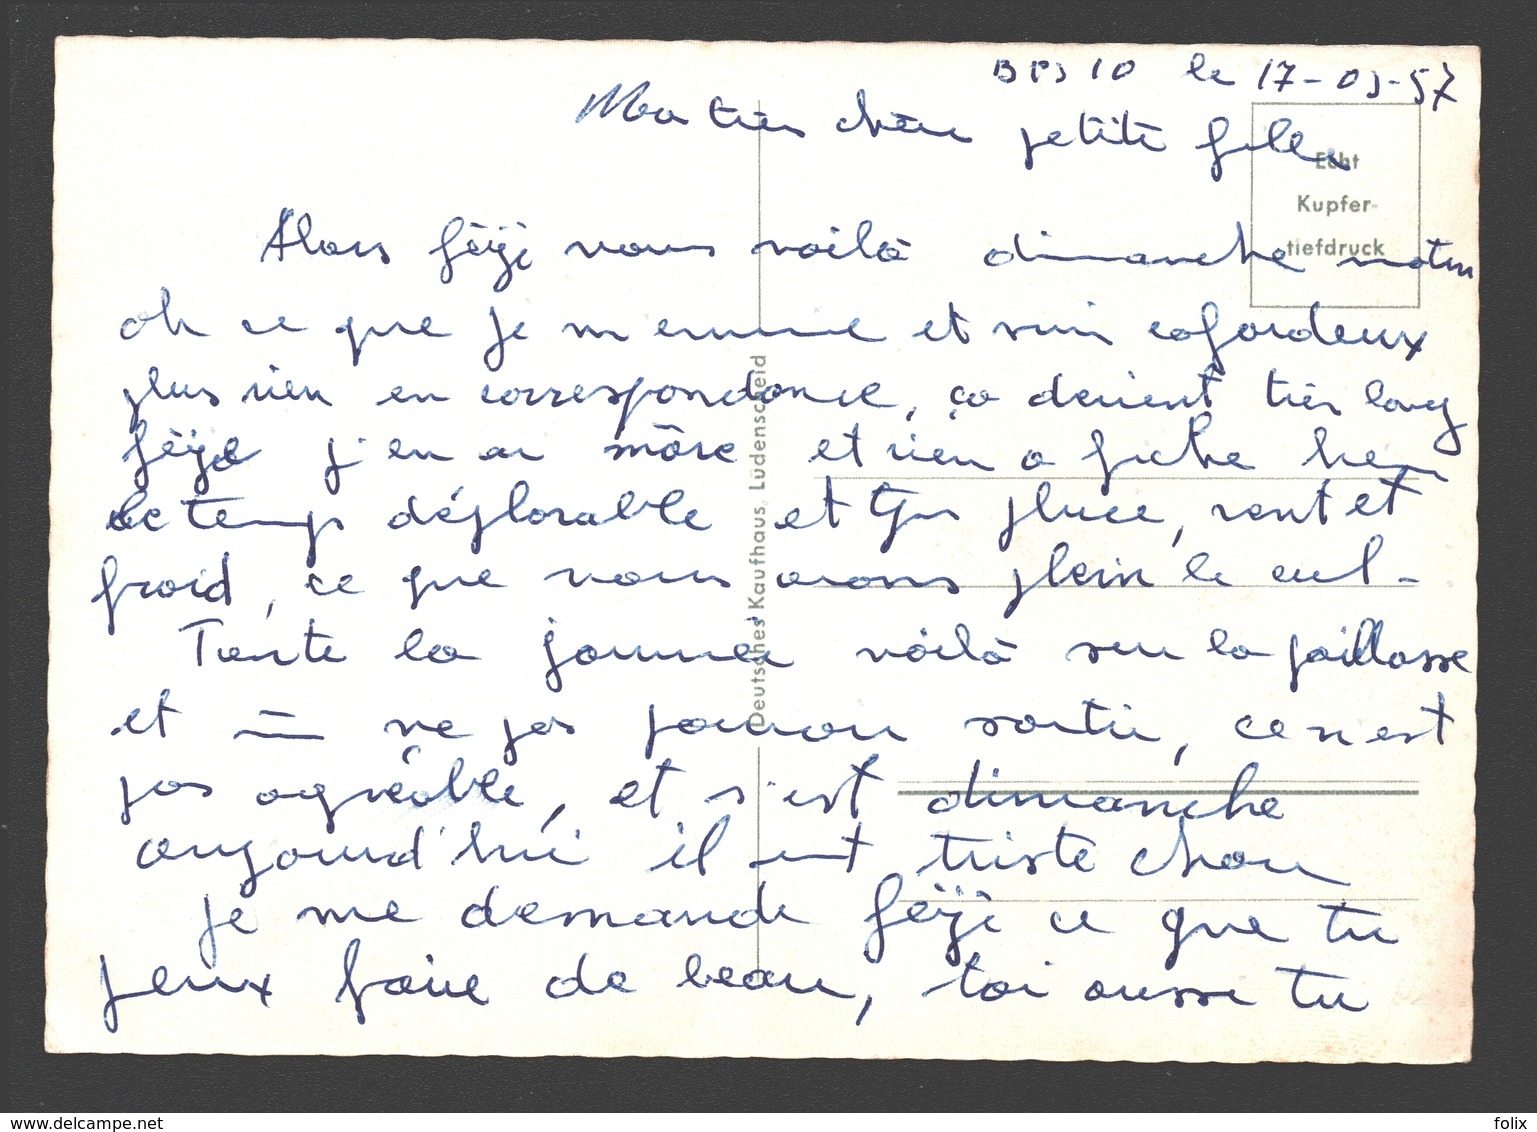 BPS 10 le 17-03-57
Ma très chère petite fille
Echt
Kupfer-
tiefdruck
Alors nous voilà dimanche matin
oh ce que je m ennuie et suis cafardeux
plus rien en correspondance, ça devient très long
j'en ai marre et rien a fiche hein
le temps déplorable et gris pluie, vent et
froid, ce que nous avons plein le cul -
Toute la journée voilà sur la paillasse
et ne pas pouvoir sortir, ce n est
pas agréable, et s'est dimanche
aujourd'hui il est triste chou
Je me demande ce que tu
peux faire de beau, toi aussi tu
Deutsches Kaufhaus, Lüdenscheid
www.delcampe.net
folix